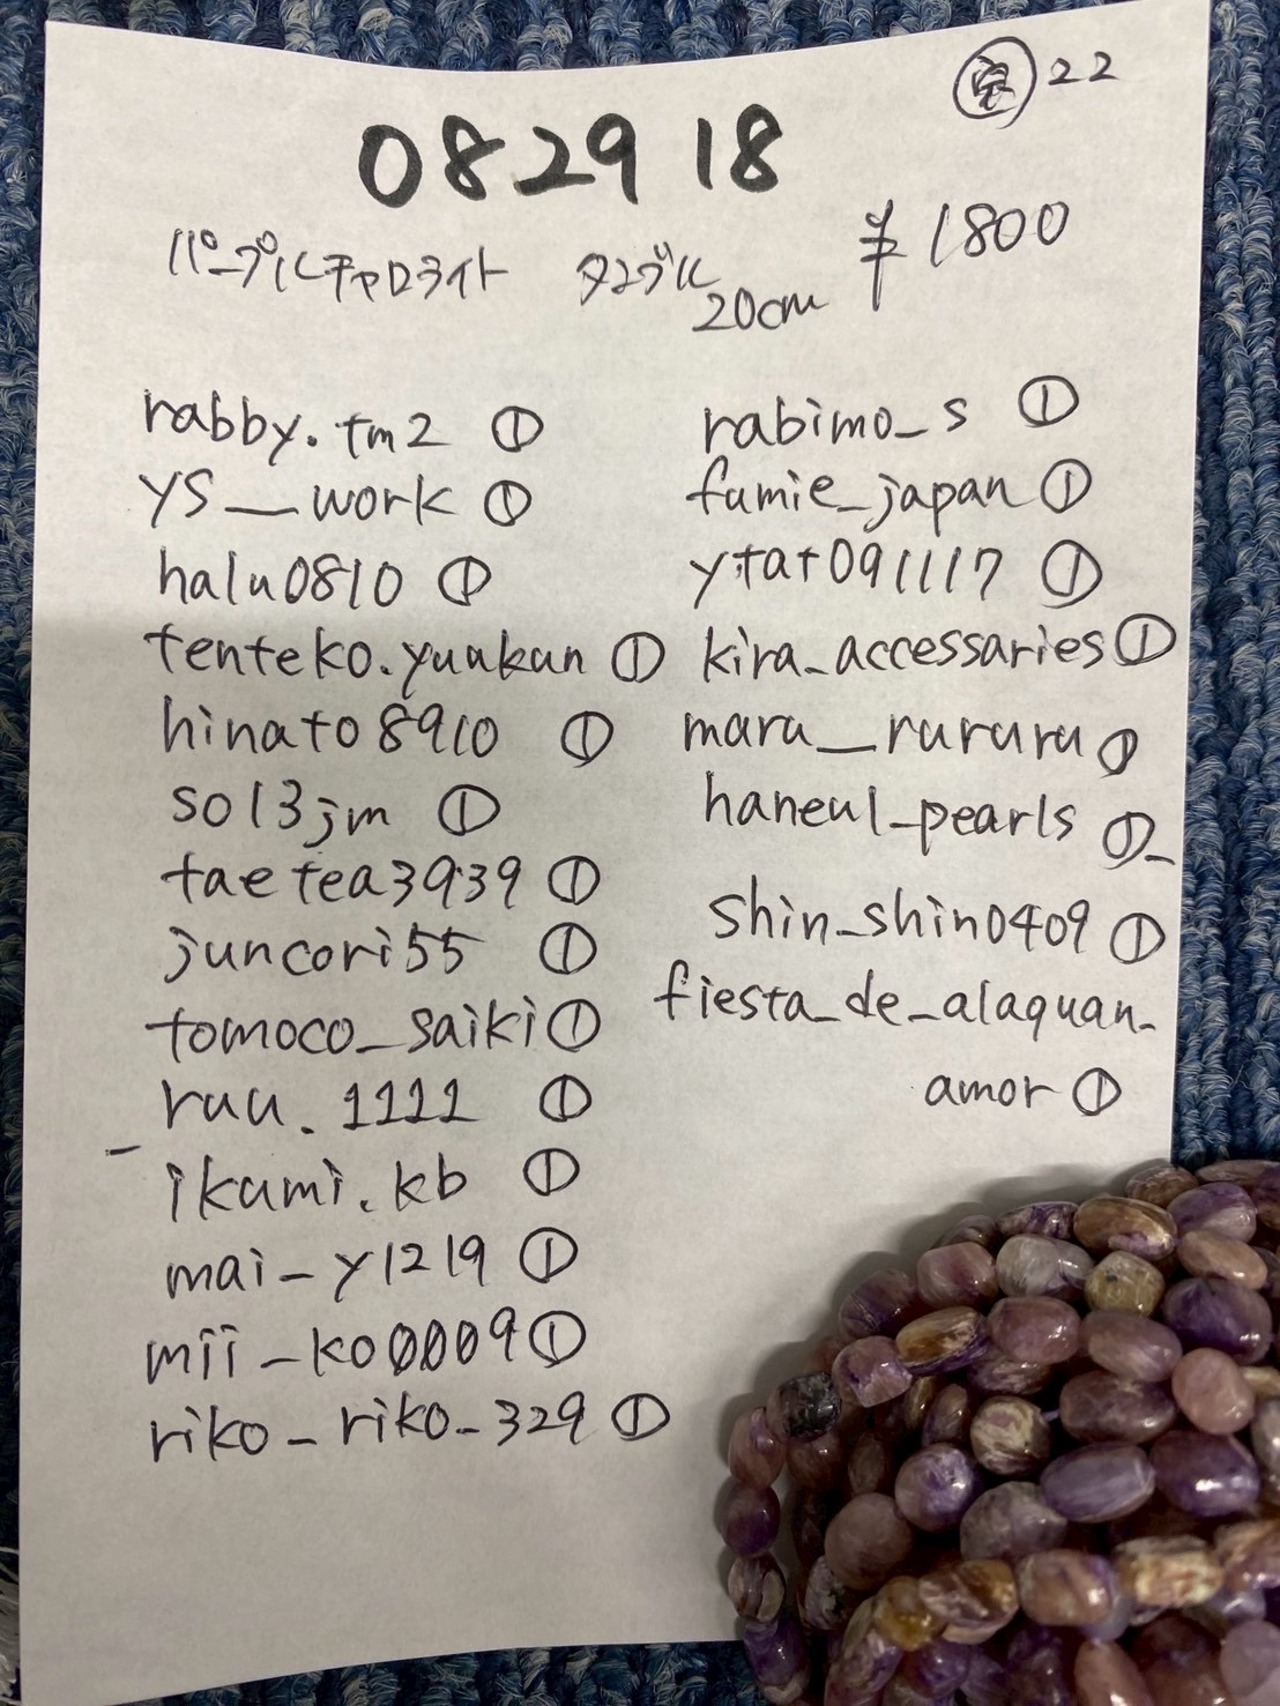 ㊡22
0829 18
パープルチャロライト タンブル ¥1800
20cm
rabby.tm2 ①
ys__work ①
halu0810 ①
tenteko.yuukun ①
hinato8910 ①
sol3jm ①
taetea3939 ①
juncori55 ①
tomoco_saiki ①
ruu.1111 ①
ikumi.kb ①
mai_y1219 ①
mii_ko0009 ①
riko_riko_329 ①
rabimo_s ①
fumie_japan ①
ytat091117 ①
kira_accessaries ①
maru__rururu ①
haneul_pearls ①
shin_shin0409 ①
fiesta_de_alaquan_
amor ①